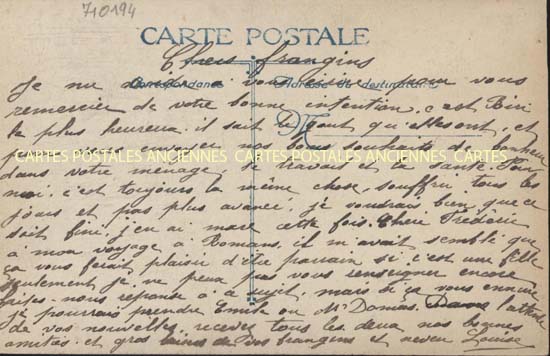 710194
CARTE POSTALE
Chers frangins
Correspondance Adresse du destinataire
Je me à vous écrire pour vous
remercier de votre bonne intention, c'est Biri
le plus heureux. il sait le gout qu'elles ont, et
pour vous envoyer nos bons souhaits de bonheur
CARTES POSTALES ANCIENNES CARTES POSTALES ANCIENNES CARTES
dans votre ménage, le travail et la santé. Pour
moi, c'est toujours la même chose, souffrir tous les
jours et pas plus avancé, je voudrais bien que ce
soit fini, j'en ai marre cette fois. Cher Frédéric
à mon voyage à Romans, il m'avait semblé que
ça vous ferait plaisir d'être parrain si c'est une fille
seulement je ne peux pas vous renseigner encore
nous réponse à ce sujet, mais si ça vous ennuie
je pourrais prendre Emile ou Mr Domas. Dans l'attente
de vos nouvelles, recevez tous les deux nos bonnes
amitiés et gros baisers de vos frangins et neveu Louise